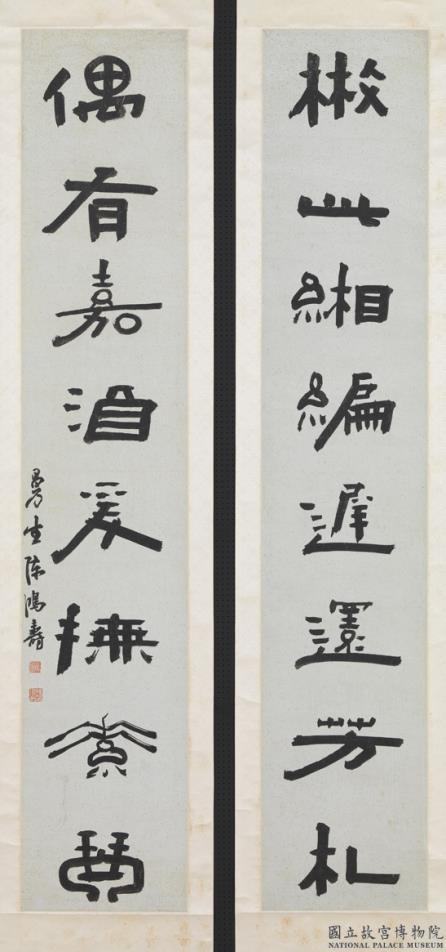 此緗編遲還芳札
偶有嘉酒爰撫素琴
曼生陳鴻壽
國立故宮博物院
NATIONAL PALACE MUSEUM